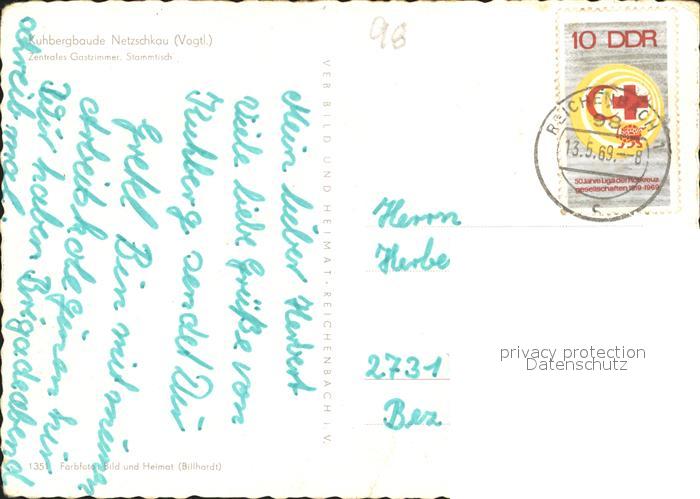 Kuhbergbaude Netzschkau (Vogtl.)
Zentrales Gastzimmer, Stammtisch
98
Mein lieber Herbert
Viele liebe Grüße von
Kuhberg sendet Dir
Gretel Bin mit meinen
Arbeitskoleginen hir
Wir haben Brigadeabend
schreib mal
VEB BILD UND HEIMAT · REICHENBACH i. V.
10 DDR
50 Jahre Liga der Rotkreuz
gesellschaften 1919-1969
REICHENBACH
98
13.5.69.--8
Herrn
Herbe
2731
Bez
privacy protection
Datenschutz
135 Farbfoto: Bild und Heimat (Billhardt)